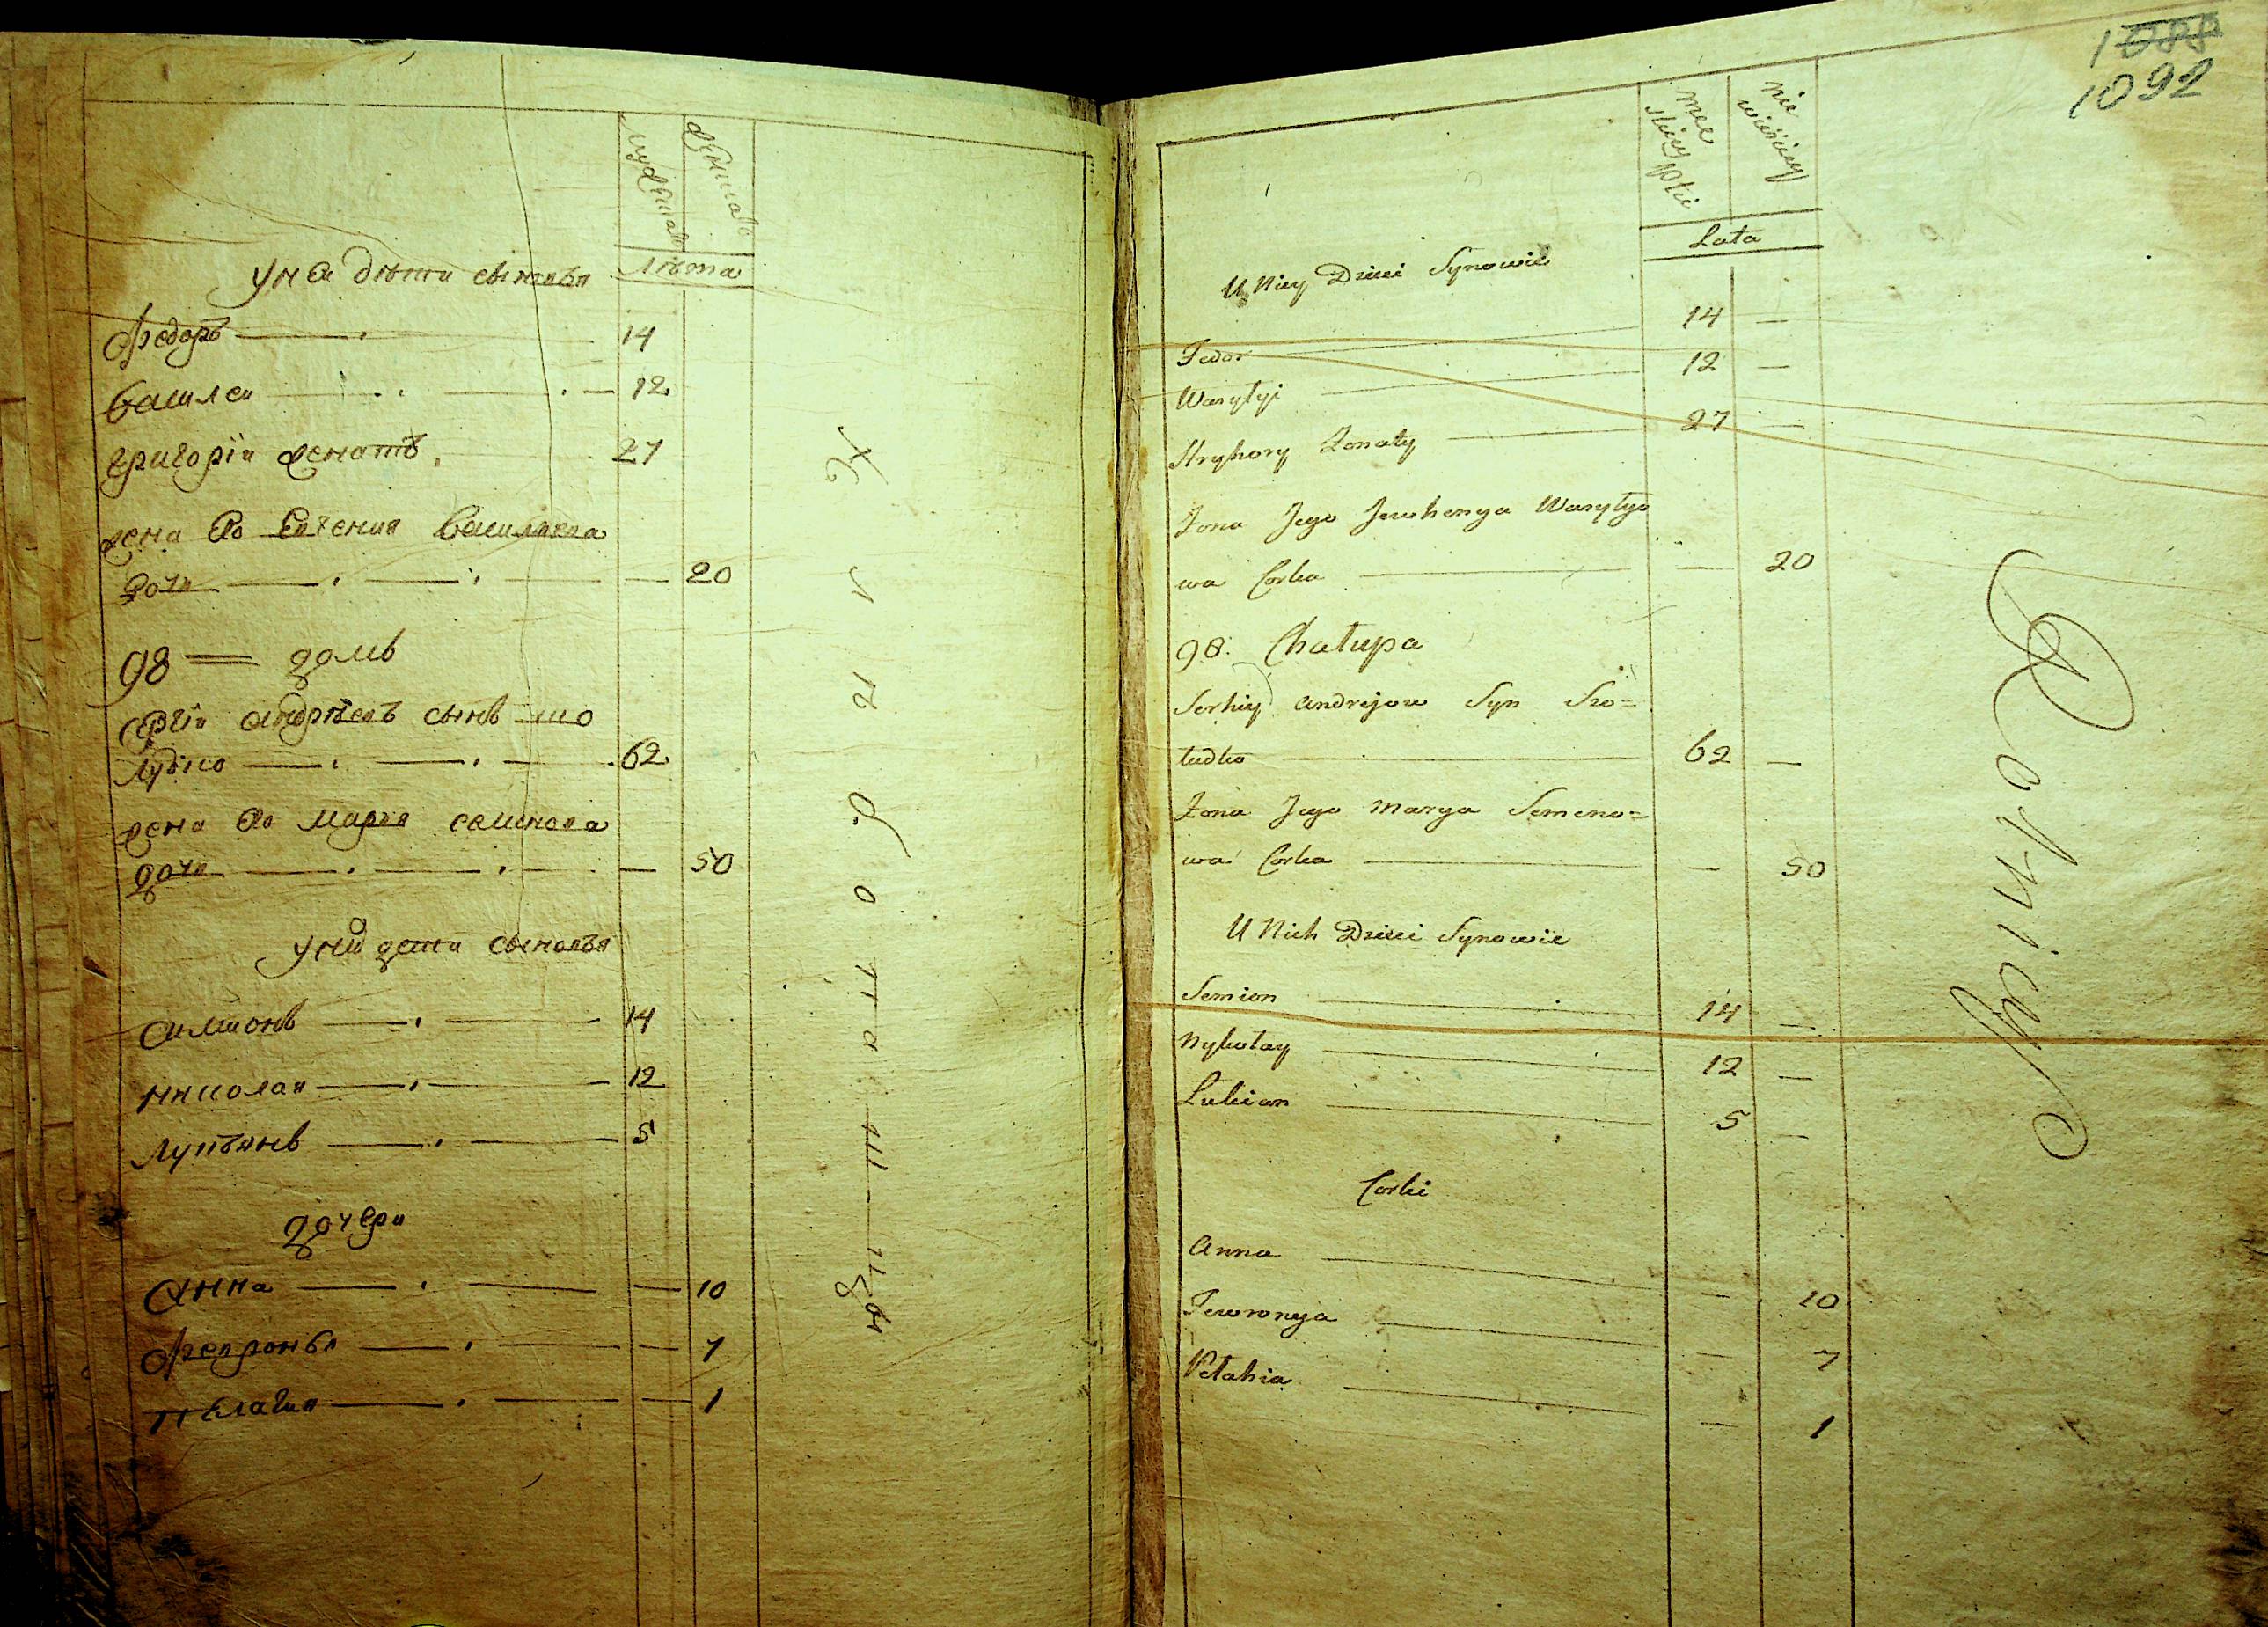 мужеска
женска
Лѣта
У неи дѣти сыновья
Федоръ 14
Василеи 12
Григоріи женатъ 27
жена его Евгения Васильева
дочь — 20
98 домъ
Сергіи Андрѣевъ сынъ Шо
лудко 62
жена его Маръя Семенова
дочь — 50
У них дети сыновья
Симионъ 14
Николай 12
Лукъянъ 5
дочери
Анна — 10
Февронья — 7
Пелагия — 1
1088
1092
mez
skiey płci
nie
wieściey
Lata
U Niey Dzieci Synowie
Fedor 14 —
Wasylyi 12 —
Hryhory Żonaty 27 —
Żona Jego Jewhenya Wasylyo
wa Corka — 20
98. Chałupa
Serhiy Andrejow Syn Szo=
ludko 62 —
Żona Jego Marya Semeno=
wa Corka — 50
U Nich Dzieci Synowie
Semion 14 —
Nykołay 12 —
Lukian 5 —
Corki
Anna — 10
Fewronya — 7
Pełahia — 1
Rotnicy